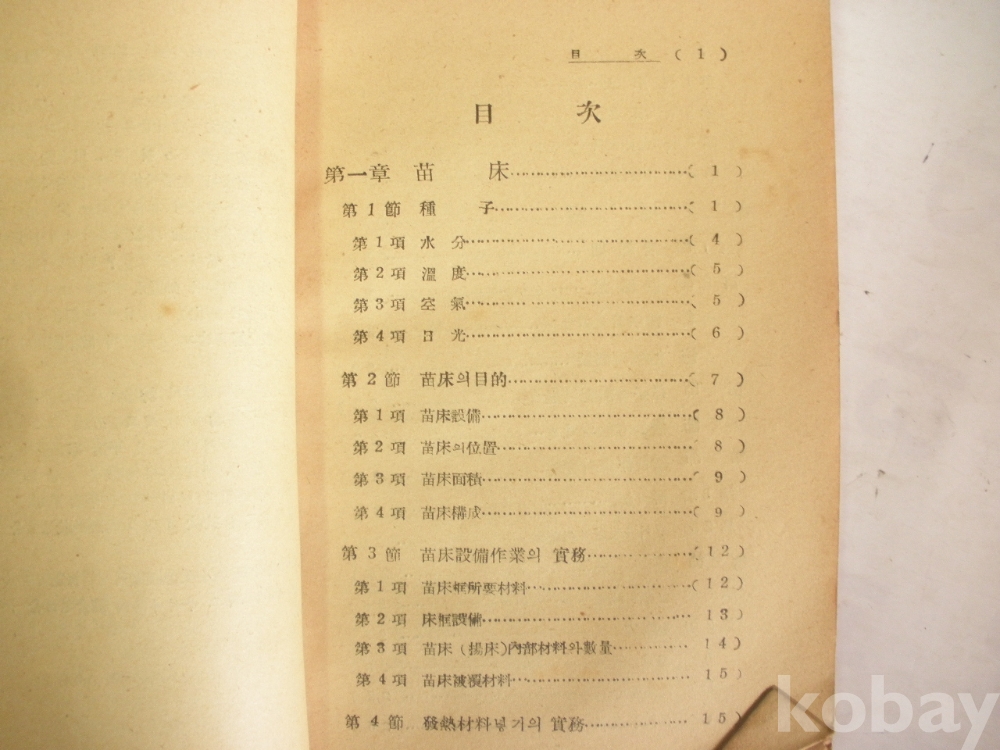 目 次 ( 1 )
目 次
第一章 苗 床……………………( 1 )
第1節 種 子……………………( 1 )
第1項 水 分……………………( 4 )
第2項 溫 度……………………( 5 )
第3項 空 氣……………………( 5 )
第4項 日 光……………………( 6 )
第2節 苗床의目的……………………( 7 )
第1項 苗床設備……………………( 8 )
第2項 苗床의位置……………………( 8 )
第3項 苗床面積……………………( 9 )
第4項 苗床構成……………………( 9 )
第3節 苗床設備作業의 實務……………(12)
第1項 苗床框所要材料………………(12)
第2項 床框設備……………………13)
第3項 苗床(揚床)內部材料와數量…………14)
第4項 苗床被覆材料…………………15)
第4節 發熱材料넣기의 實務……………15)
kobay